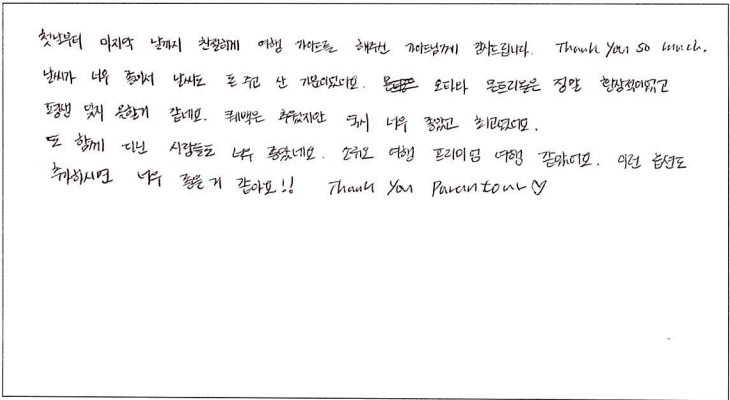 첫날부터 마지막 날까지 친절하게 여행 가이드를 해주신 가이드님께 감사드립니다. Thank you so much.
날씨가 너무 좋아서 날씨도 돈 주고 산 기분이었어요. 오타와 몬트리올은 정말 환상적이었고
평생 잊지 못할거 같네요. 퀘백은 추웠지만 역시 너무 좋았고 최고였어요.
또 함께 다닌 사람들도 너무 좋았네요. 소규모 여행 프리미엄 여행 같았어요. 이런 옵션도
추가하시면 너무 좋을거 같아요!! Thank you Parantour ♡